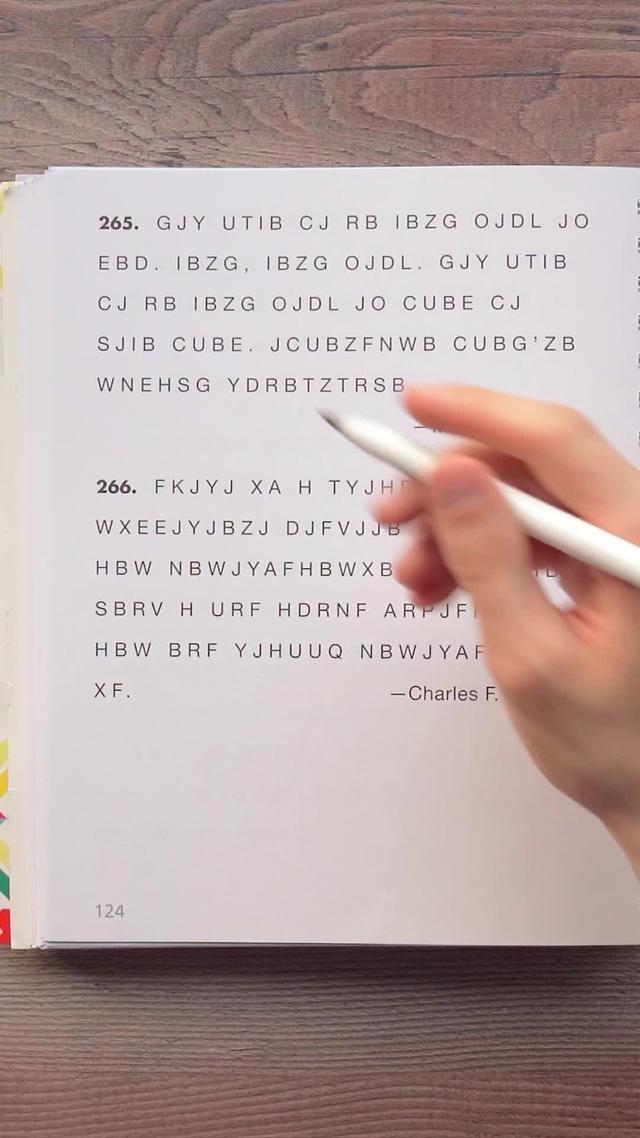 265. GJY UTIB CJ RB IBZG OJDL JO
EBD. IBZG, IBZG OJDL. GJY UTIB
CJ RB IBZG OJDL JO CUBE CJ
SJIB CUBE. JCUBZFNWB CUBG’ZB
WNEHSG YDRBTZTRSB
266. FKJYJ XA H
WXEEJYJBZJ DJFVJJB
HBW
SBRV H URF HDRNF
HBW BRF YJHUUQ
XF. —Charles F.
124